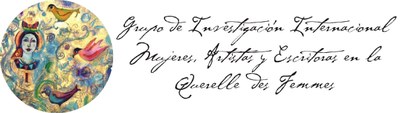 Grupo de Investigación Internacional
Mujeres, Artistas y Escritoras en la
Querelle des Femmes